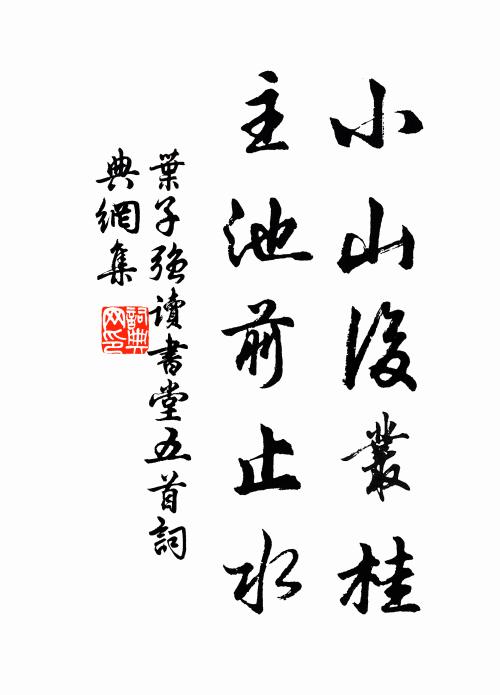 小山後叢桂
主池前止水
葉子強讀書堂五首詞
典網集
詞典
网印